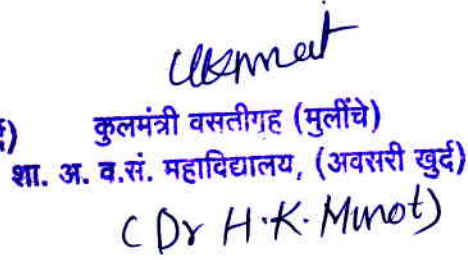 र्द)
कुलमंत्री वसतीगृह (मुलींचे)
शा. अ. व.सं. महाविद्यालय, (अवसरी खुर्द)
(Dr H.K. Munot)